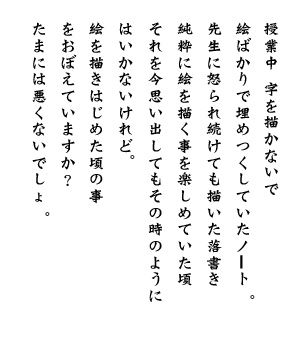 授業中　字を描かないで
絵ばかりで埋めつくしていたノート。
先生に怒られ続けても描いた落書き
純粋に絵を描く事を楽しめていた頃
それを今思い出してもその時のように
はいかないけれど。
絵を描きはじめた頃の事
をおぼえていますか？
たまには悪くないでしょ。